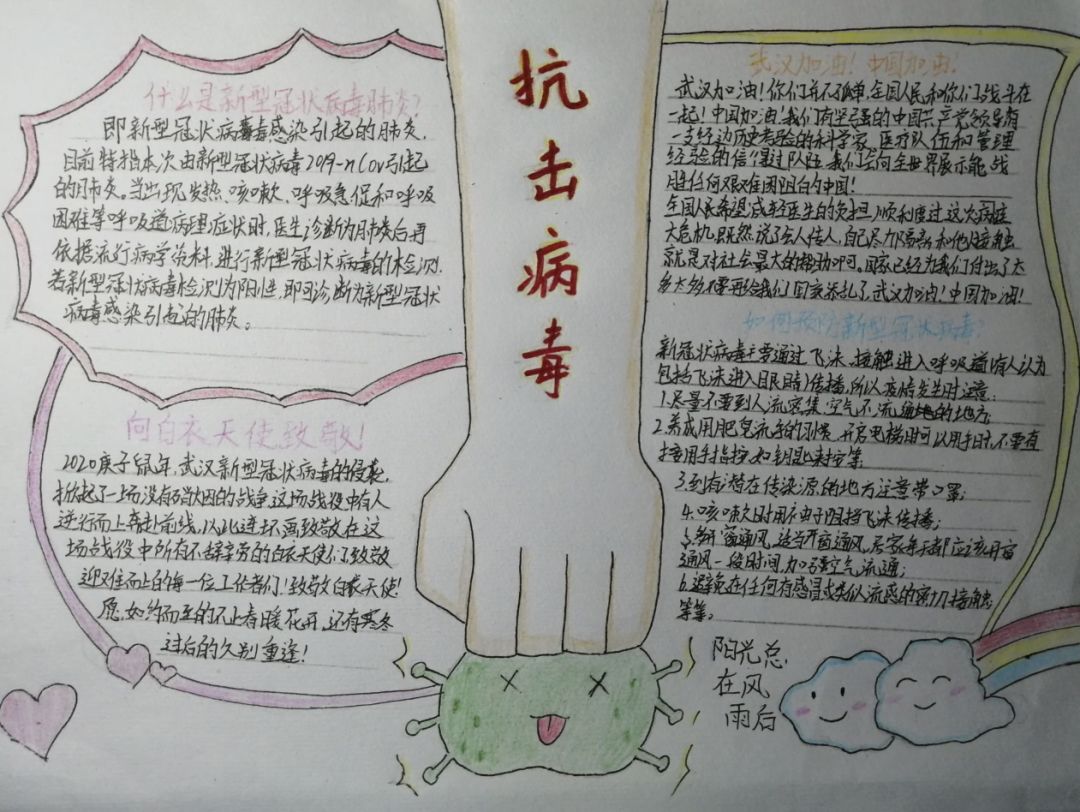 抗击病毒
什么是新型冠状病毒肺炎?
即新型冠状病毒毒感染引起的肺炎,
目前特指本次由新型冠状病毒2019-nCov引起
的肺炎。当出现发热、咳嗽、呼吸急促和呼吸
困难等呼吸道病理症状时,医生诊断为肺炎后再
依据流行病学资料,进行新型冠状病毒的体检测,
若新型冠状病毒检测为阳性,即可诊断为新型冠状
病毒感染引起的肺炎。
向白衣天使致敬!
2020庚子鼠年,武汉新型冠状病毒的侵袭,
掀起了一场没有硝烟的战争这场战役中有人
逆行而上奔赴前线,以此连环画致敬在这
场战役中所有不辞辛劳的白衣天使们,致敬
迎难而上的每一位工作者们!致敬白衣天使!
愿,如约而至的不止春暖花开,还有寒冬
过后的久别重逢!
武汉加油!中国加油!
武汉加油!你们并不孤单,全国人民和你们战斗在
一起!中国加油,我们有坚强的中国共产党领导,有
一支经过历史考验的科学家、医疗队伍和管理
经验的信得过队伍,我们会向全世界展示能战
胜任何艰难困阻的中国!
全国人民希望减轻医生的负担,顺利度过这次病症
大危机,既然说了会人传人,自己尽力隔离和他人接触
就是对社会最大的帮助啊,国家已经为我们付出了太
多太多不要再给我们国家添乱了,武汉加油!中国加油!
如何预防新型冠状病毒?
新冠状病毒主要通过飞沫、接触进入呼吸道(有人认为
包括飞沫进入眼睛)传播,所以疫情发生时注意:
1.尽量不要到人流密集、空气不流通地的地方;
2.养成用肥皂洗手的习惯,开启电梯时可以用手肘,不要直
接用手指按,如钥匙来按等
3.到有潜在传染源的地方注意带口罩;
4.咳嗽时用袖子阻挡飞沫传播;
5.多开窗通风,适当开窗通风,居家每天都应该开窗
通风一段时间,加强空气流通;
6.避免在任何有感冒或类似流感的密切接触
等等。
阳光总
在风
雨后